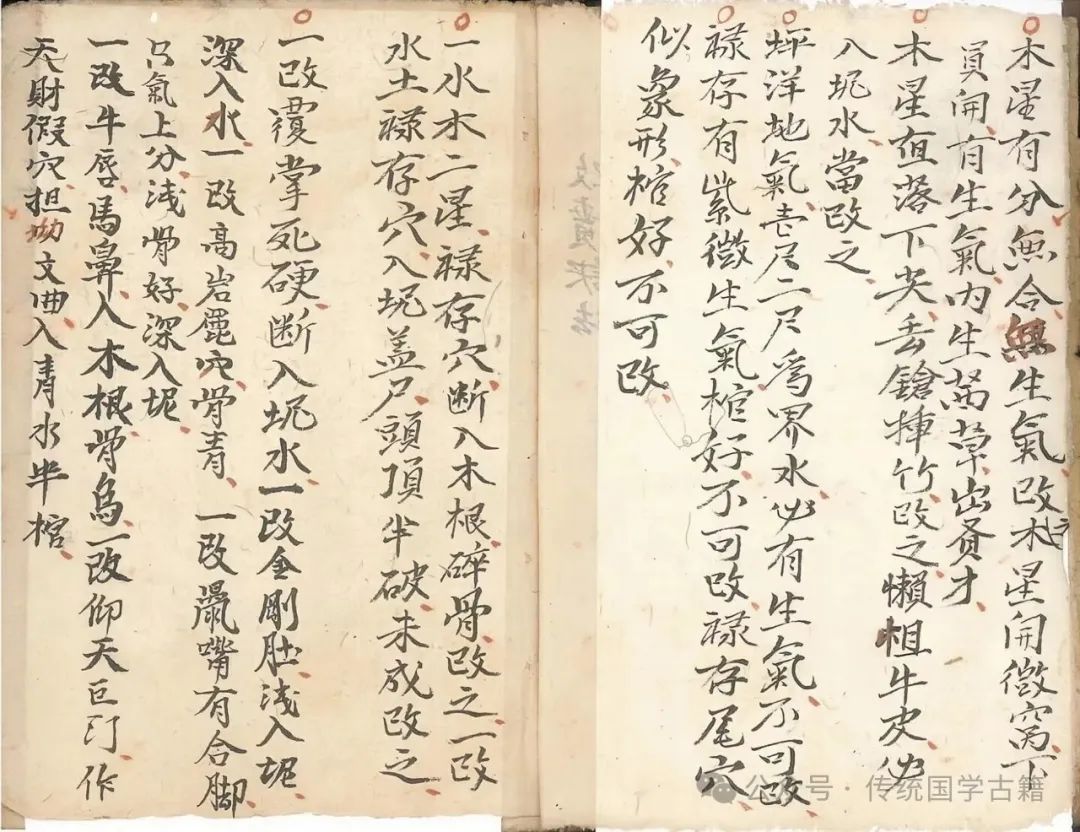 木星有分無合無生氣改木星開微窩下
員開有生氣内生萬草出賢才
木星直落下尖丢鎗揷竹改之懶担牛皮必
入坭水當改之
坪洋地氣壹尺二尺爲界水必有生氣不可改
禄存有紫微生氣棺好不可改禄存尾穴
似象形棺好不可改
一水木二星禄存穴断入木根碎骨改之一改
水土禄存穴入坭盖尸頭頂半破未成改之
一改覆掌死硬断入坭水一改金剛肚浅入坭
深入水一改高岩穴骨青一改鼠嘴有合脚
只氣上分浅骨好深入坭
一改牛唇馬鼻入木根骨烏一改仰天巨汀作
天財假穴担拗文曲入青水半棺
公众号 传统国学古籍